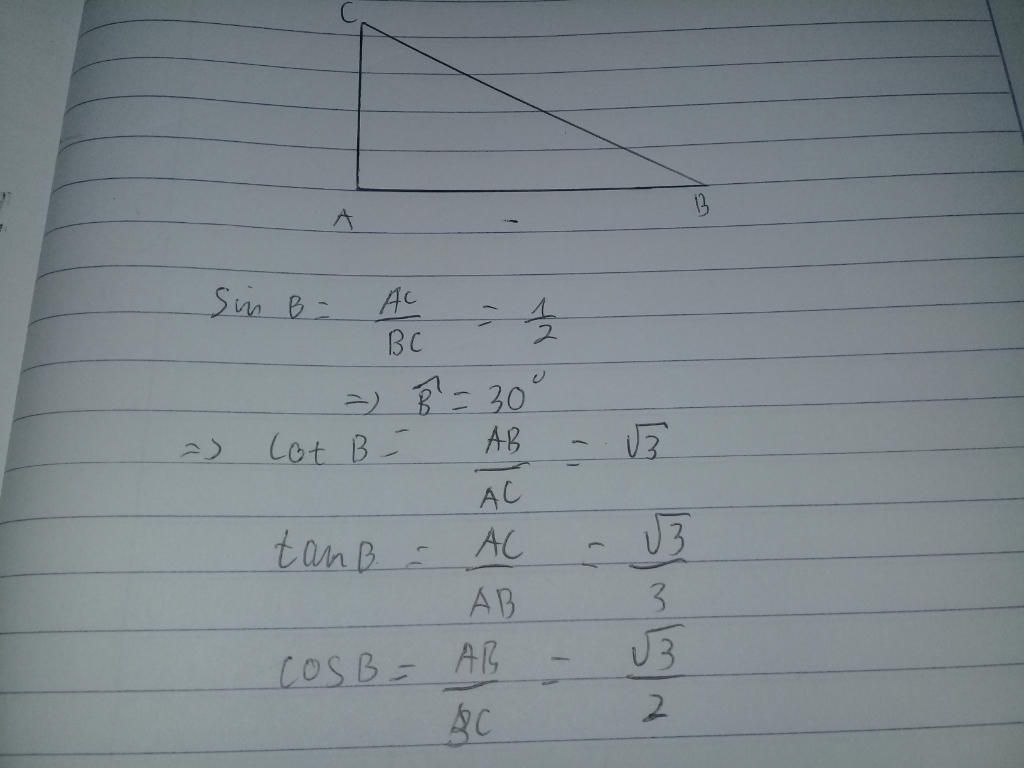 C
A
B
Sin B = AC/BC = 1/2
=> B̂ = 30°
=> Cot B = AB/AC = √3
tan B = AC/AB = √3/3
COS B = AB/BC = √3/2